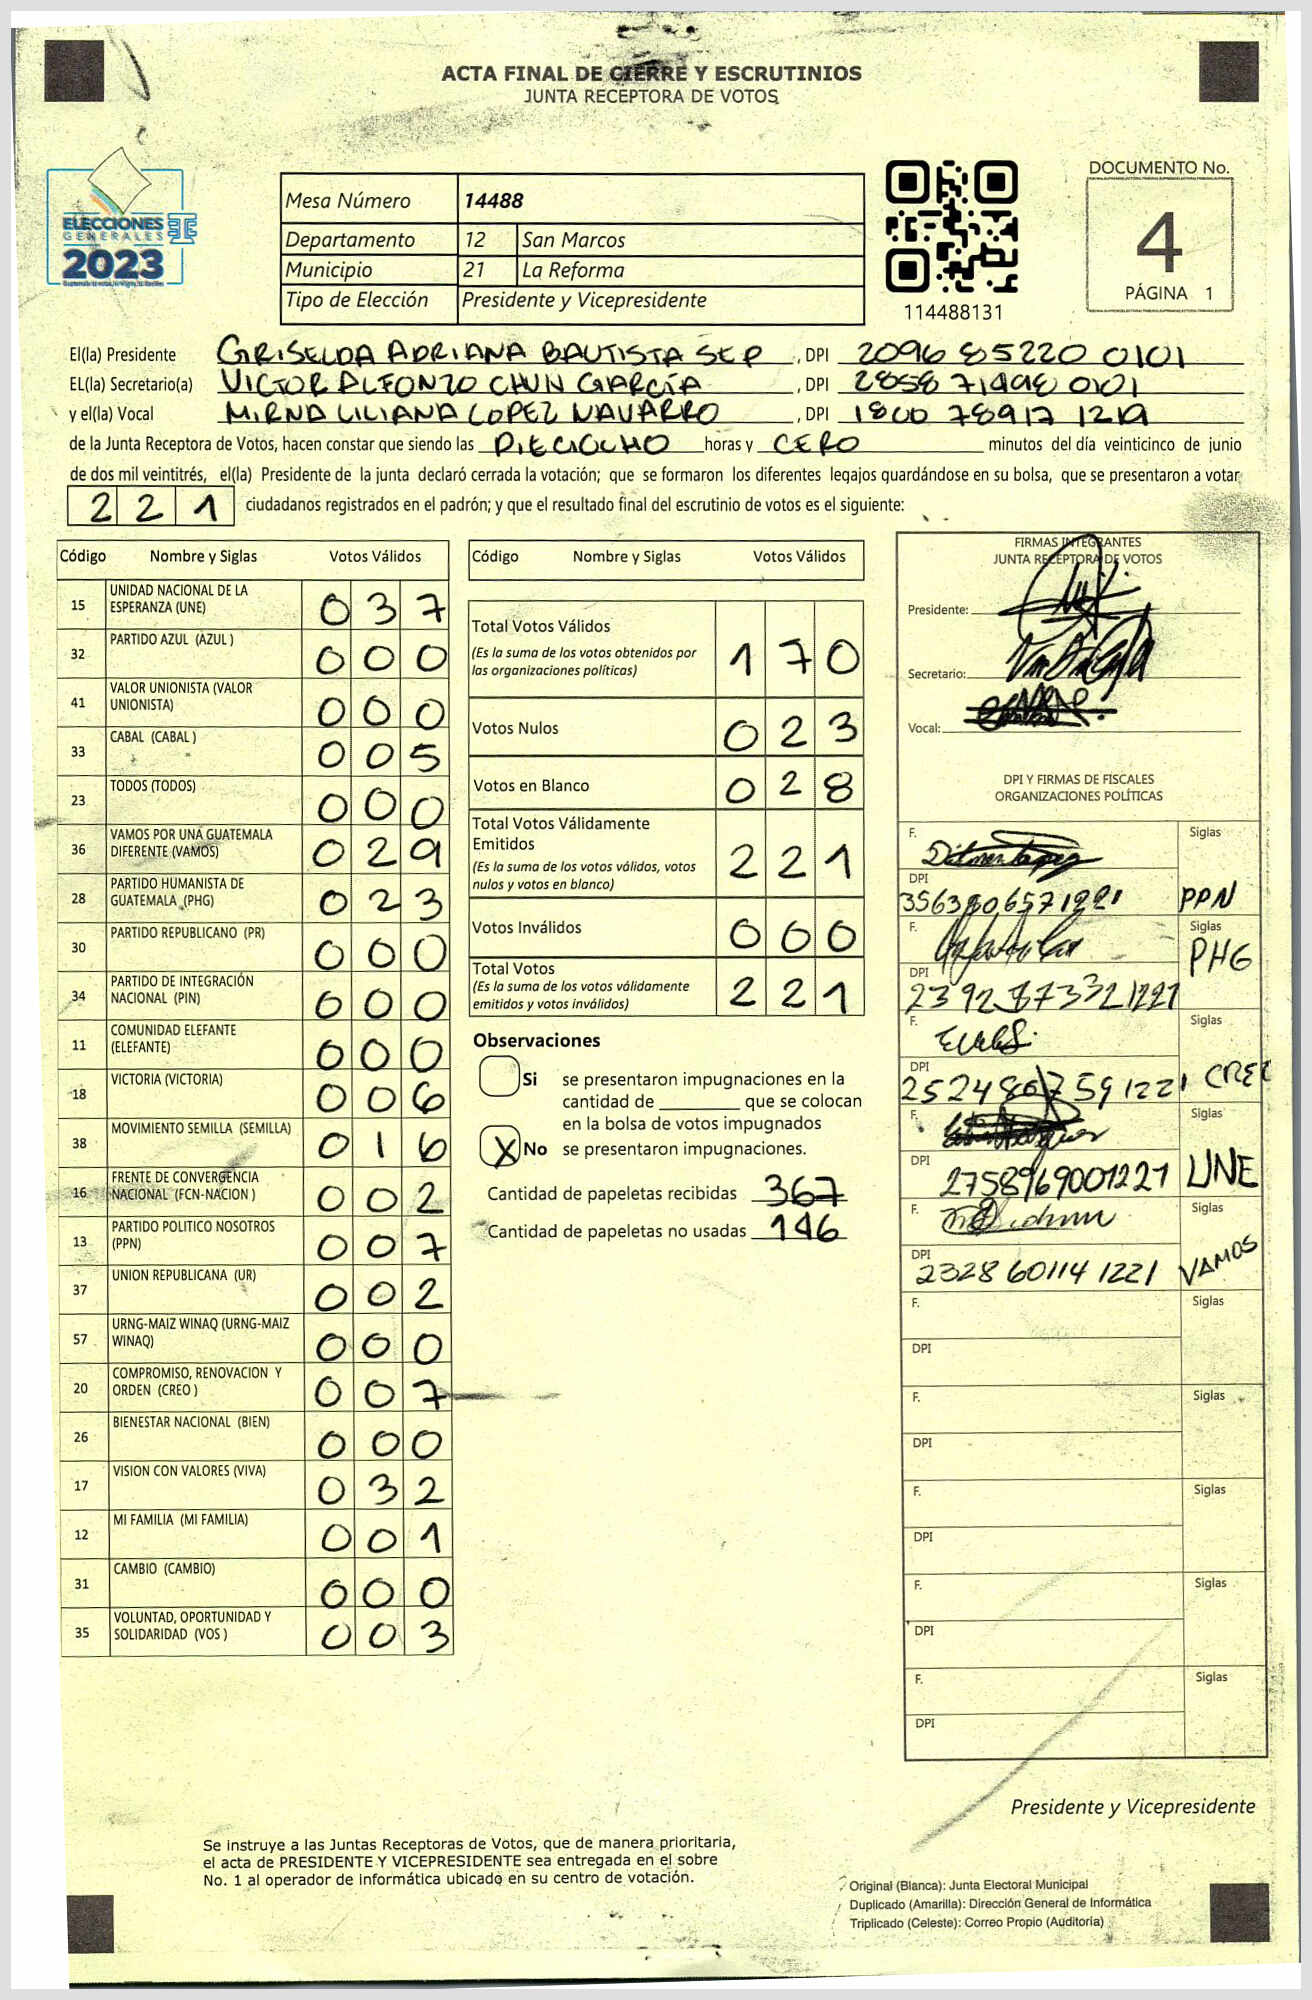 ACTA FINAL DE CIERRE Y ESCRUTINIOS
JUNTA RECEPTORA DE VOTOS
ELECCIONES
GENERALES
2023
Mesa Número 14488
Departamento 12 San Marcos
Municipio 21 La Reforma
Tipo de Elección Presidente y Vicepresidente
114488131
DOCUMENTO No.
4
PÁGINA 1
El(la) Presidente GRISELDA ADRIANA BAUTISTA SEP , DPI 2096 85220 0101
EL(la) Secretario(a) VICTOR ALFONZO CHUN GARCÍA , DPI 2858 71498 0101
y el(la) Vocal MIRNA LILIANA LOPEZ NAVARRO , DPI 1800 78917 1219
de la Junta Receptora de Votos, hacen constar que siendo las DIECIOCHO horas y CERO minutos del día veinticinco de junio
de dos mil veintitrés, el(la) Presidente de la junta declaró cerrada la votación; que se formaron los diferentes legajos guardándose en su bolsa, que se presentaron a votar
221 ciudadanos registrados en el padrón; y que el resultado final del escrutinio de votos es el siguiente:
Código Nombre y Siglas Votos Válidos
15 UNIDAD NACIONAL DE LA ESPERANZA (UNE) 037
32 PARTIDO AZUL (AZUL ) 000
41 VALOR UNIONISTA (VALOR UNIONISTA) 000
33 CABAL (CABAL ) 005
23 TODOS (TODOS) 000
36 VAMOS POR UNA GUATEMALA DIFERENTE (VAMOS) 029
28 PARTIDO HUMANISTA DE GUATEMALA (PHG) 023
30 PARTIDO REPUBLICANO (PR) 000
34 PARTIDO DE INTEGRACIÓN NACIONAL (PIN) 000
11 COMUNIDAD ELEFANTE (ELEFANTE) 000
18 VICTORIA (VICTORIA) 006
38 MOVIMIENTO SEMILLA (SEMILLA) 016
16 FRENTE DE CONVERGENCIA NACIONAL (FCN-NACION ) 002
13 PARTIDO POLITICO NOSOTROS (PPN) 007
37 UNION REPUBLICANA (UR) 002
57 URNG-MAIZ WINAQ (URNG-MAIZ WINAQ) 000
20 COMPROMISO, RENOVACION Y ORDEN (CREO ) 007
26 BIENESTAR NACIONAL (BIEN) 000
17 VISION CON VALORES (VIVA) 032
12 MI FAMILIA (MI FAMILIA) 001
31 CAMBIO (CAMBIO) 000
35 VOLUNTAD, OPORTUNIDAD Y SOLIDARIDAD (VOS ) 003
Código Nombre y Siglas Votos Válidos
Total Votos Válidos 170
(Es la suma de los votos obtenidos por
las organizaciones políticas)
Votos Nulos 023
Votos en Blanco 028
Total Votos Válidamente
Emitidos 221
(Es la suma de los votos válidos, votos
nulos y votos en blanco)
Votos Inválidos 000
Total Votos 221
(Es la suma de los votos válidamente
emitidos y votos inválidos)
Observaciones
Si se presentaron impugnaciones en la
cantidad de ________ que se colocan
en la bolsa de votos impugnados
X No se presentaron impugnaciones.
Cantidad de papeletas recibidas 367
Cantidad de papeletas no usadas 146
FIRMAS INTEGRANTES
JUNTA RECEPTORA DE VOTOS
Presidente:
Secretario:
Vocal:
DPI Y FIRMAS DE FISCALES
ORGANIZACIONES POLÍTICAS
F. Siglas
DPI
PPN
F. Siglas
PHG
DPI
F. Siglas
DPI
CREO
F. Siglas
DPI
2758969001221 UNE
F. Siglas
DPI
2328 60114 1221 VAMOS
F. Siglas
DPI
F. Siglas
DPI
F. Siglas
DPI
F. Siglas
DPI
F. Siglas
DPI
Presidente y Vicepresidente
Se instruye a las Juntas Receptoras de Votos, que de manera prioritaria,
el acta de PRESIDENTE Y VICEPRESIDENTE sea entregada en el sobre
No. 1 al operador de informática ubicado en su centro de votación.
Original (Blanca): Junta Electoral Municipal
Duplicado (Amarilla): Dirección General de Informática
Triplicado (Celeste): Correo Propio (Auditoría)